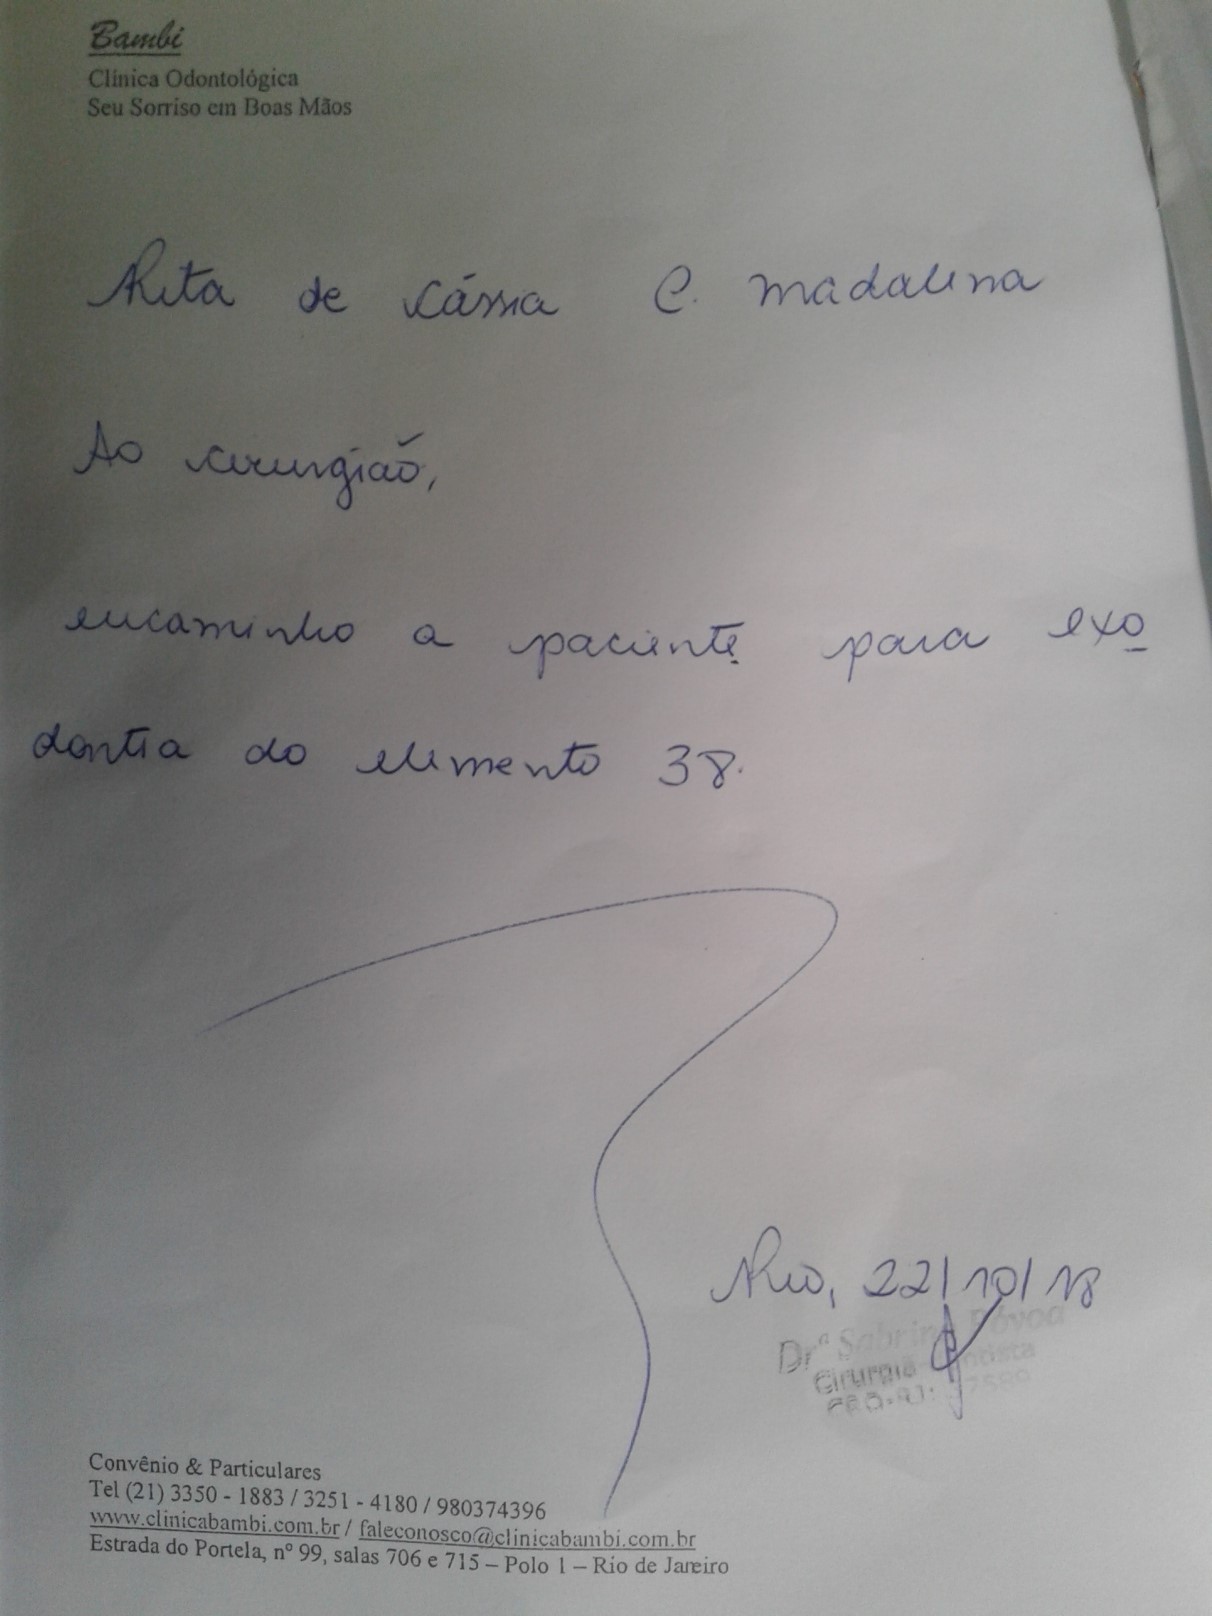 Bambi
Clínica Odontológica
Seu Sorriso em Boas Mãos
Rita de Cássia C. Madalena
Ao cirurgião,
encaminho a paciente para exo
dontia do elemento 38.
Rio, 22/10/18
Drª Sabrina Póvoa
Cirurgiã-Dentista
CRO-RJ:
Convênio & Particulares
Tel (21) 3350 - 1883 / 3251 - 4180 / 980374396
www.clinicabambi.com.br / faleconosco@clinicabambi.com.br
Estrada do Portela, nº 99, salas 706 e 715 – Polo 1 – Rio de Janeiro